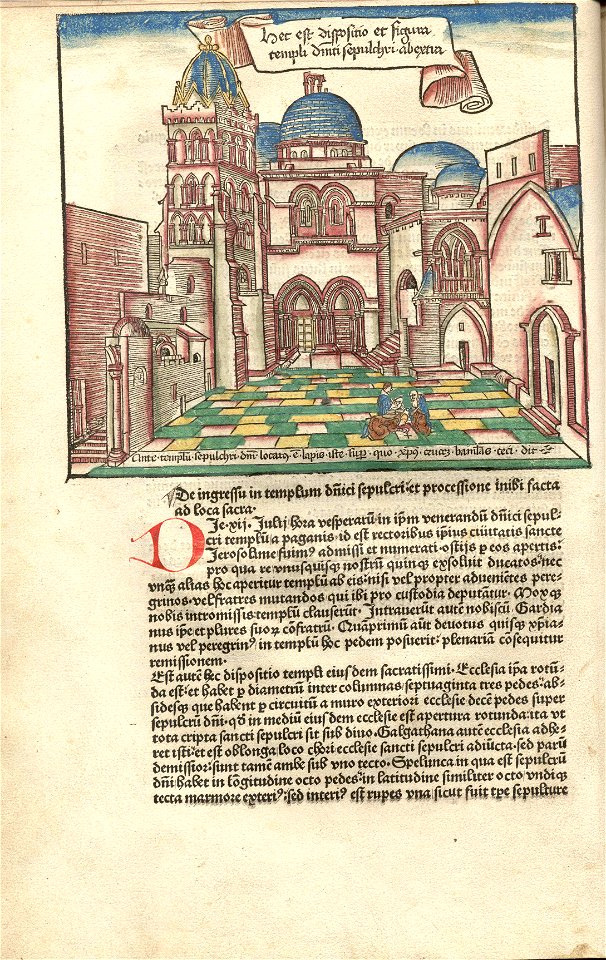 Hec est dispositio et figura
templi dn̄ici sepulchri ab extra
Ante templū sepulchri dn̄i locatꝰ ē lapis iste supꝑ quo xp̄us cruceꝫ baiulās ceci dit
De ingressu in templum dn̄ici sepulcri: et processione inibi facta
ad loca sacra·
DIe·xij· Julij hora vesperarū in ip̄m venerandū dn̄ici sepul-
cri templū a paganis· id est rectoribus ip̄ius ciuitatis sancte
Jerosolime fuimꝰ admissi et numerati· ostijs ꝑ eos apertis:
pro qua re vnusquisqꝫ nostrū quinqꝫ exsoluit ducatos: nec
vnꝙ̄ alias hoc aperitur templū ab eis: nisi vel propter aduenietes pere-
grinos· vel fratres mutandos qui ibi pro custodia deputātur· Mox qꝫ
nobis intromissis templū clauserūt· Intrauerūt autē nobiscū Gardia
nus ip̄e et plures suoꝝ cōfratrū· Quāprimū aūt deuotus quisqꝫ xp̄ia-
nus vel peregrinꝰ in templū hoc pedem posuerit: plenariā cōsequitur
remissionem·
Est autē hec dispositio templi eiusdem sacratissimi· Ecclesia ip̄a rotū-
da est: et habet ꝑ diametrū inter columnas septuaginta tres pedes: ab-
sides qꝫ que habent ꝑ circuitū a muro exteriori ecclesie decē pedes super
sepulcrū dn̄i· qd̓ in mediū eiusdem ecclesie est apertura rotunda: ita vt
tota cripta sancti sepulcri sit sub diuo· Galgathana autē ecclesia adhe-
ret isti: et est oblonga loco chori ecclesie sancti sepulcri adiūcta· sed parū
demissior: sunt tamē ambe sub vno tecto· Spelunca in qua est sepulcrū
dn̄i habet in lōgitudine octo pedes: in latitudine similiter octo vndiqꝫ
tecta marmore exteriꝰ: sed interiꝰ est rupes vna sicut fuit tp̄e sepulture